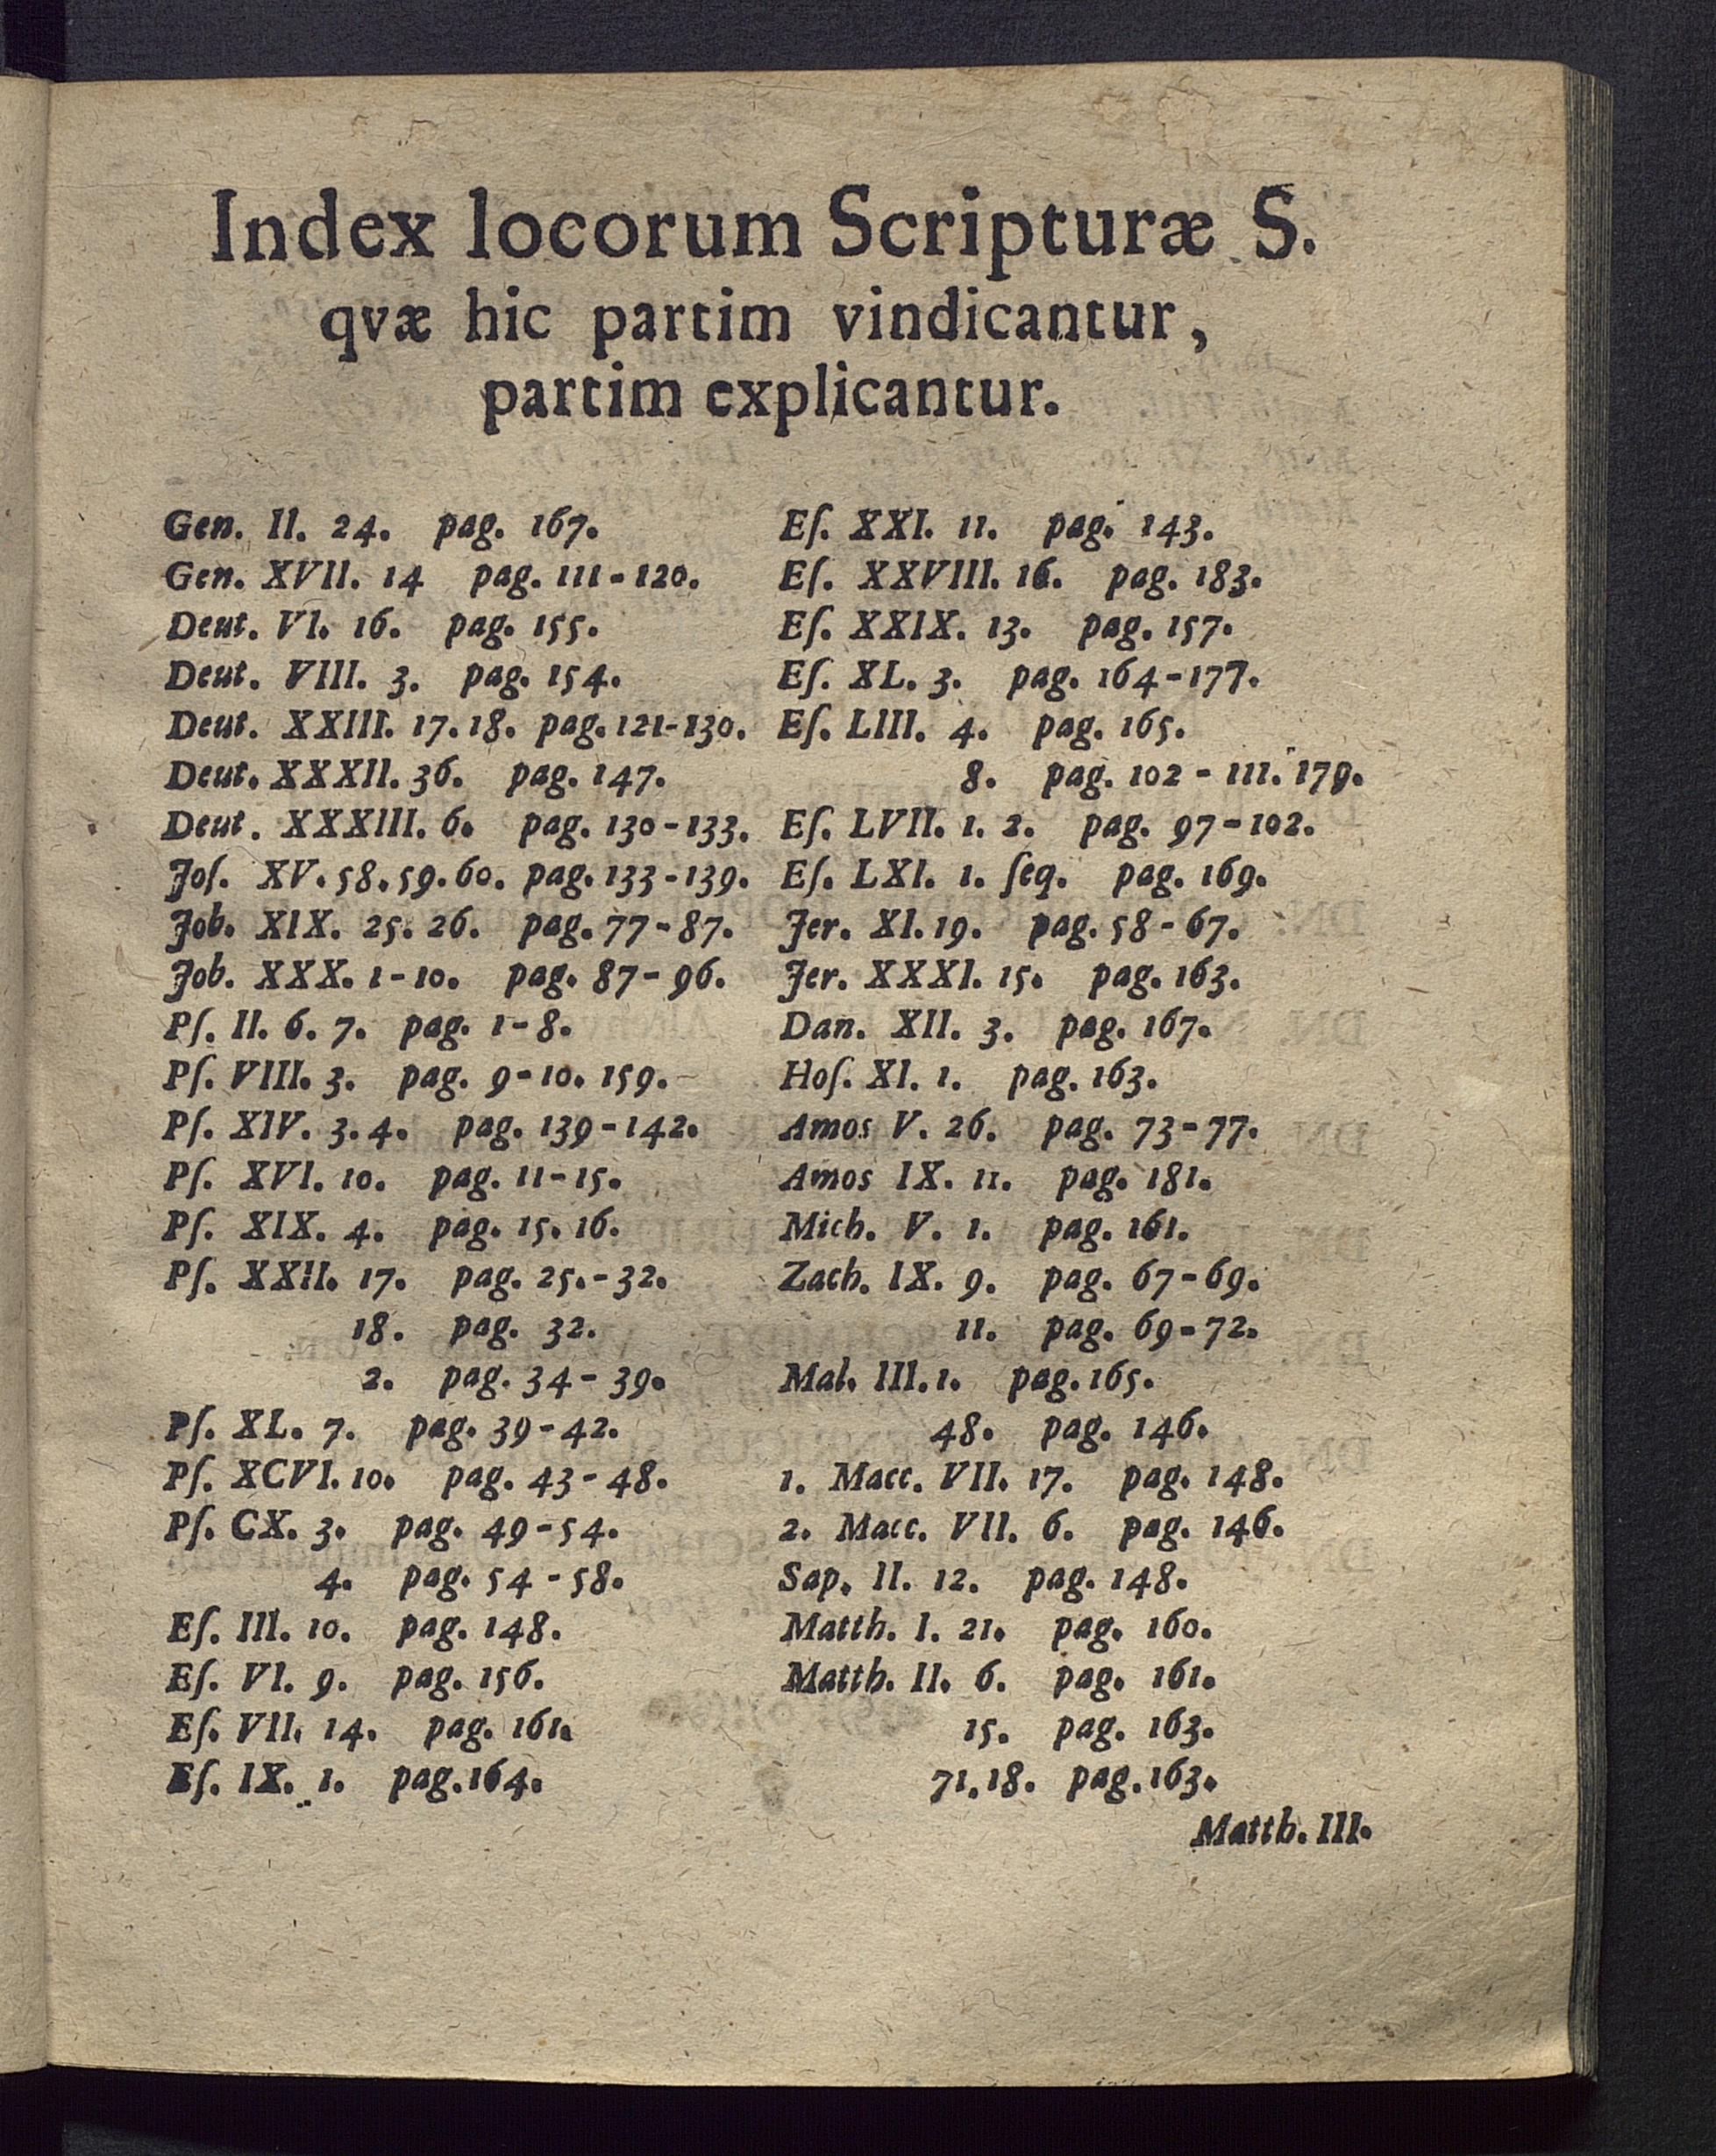 Index locorum Scripturæ S.
qvæ hic partim vindicantur,
partim explicantur.
Gen. II. 24. pag. 167.
Gen. XVII. 14 pag. 111-120.
Deut. VI. 16. pag. 155.
Deut. VIII. 3. pag. 154.
Deut. XXIII. 17. 18. pag. 121-130.
Deut. XXXII. 36. pag. 147.
Deut. XXXIII. 6. pag. 130-133.
Joſ. XV. 58. 59. 60. pag. 133-139.
Job. XIX. 25. 26. pag. 77-87.
Job. XXX. 1-10. pag. 87-96.
Pſ. II. 6. 7. pag. 1-8.
Pſ. VIII. 3. pag. 9-10. 159.
Pſ. XIV. 3. 4. pag. 139-142.
Pſ. XVI. 10. pag. 11-15.
Pſ. XIX. 4. pag. 15. 16.
Pſ. XXII. 17. pag. 25.-32.
18. pag. 32.
2. pag. 34-39.
Pſ. XL. 7. pag. 39-42.
Pſ. XCVI. 10. pag. 43-48.
Pſ. CX. 3. pag. 49-54.
4. pag. 54-58.
Eſ. III. 10. pag. 148.
Eſ. VI. 9. pag. 156.
Eſ. VII. 14. pag. 161.
Eſ. IX. 1. pag. 164.
Eſ. XXI. 11. pag. 143.
Eſ. XXVIII. 16. pag. 183.
Eſ. XXIX. 13. pag. 157.
Eſ. XL. 3. pag. 164-177.
Eſ. LIII. 4. pag. 165.
8. pag. 102-111. 179.
Eſ. LVII. 1. 2. pag. 97-102.
Eſ. LXI. 1. ſeq. pag. 169.
Jer. XI. 19. pag. 58-67.
Jer. XXXI. 15. pag. 163.
Dan. XII. 3. pag. 167.
Hoſ. XI. 1. pag. 163.
Amos V. 26. pag. 73-77.
Amos IX. 11. pag. 181.
Mich. V. 1. pag. 161.
Zach. IX. 9. pag. 67-69.
11. pag. 69-72.
Mal. III. 1. pag. 165.
48. pag. 146.
1. Macc. VII. 17. pag. 148.
2. Macc. VII. 6. pag. 146.
Sap. II. 12. pag. 148.
Matth. I. 21. pag. 160.
Matth. II. 6. pag. 161.
15. pag. 163.
71. 18. pag. 163.
Matth. III.